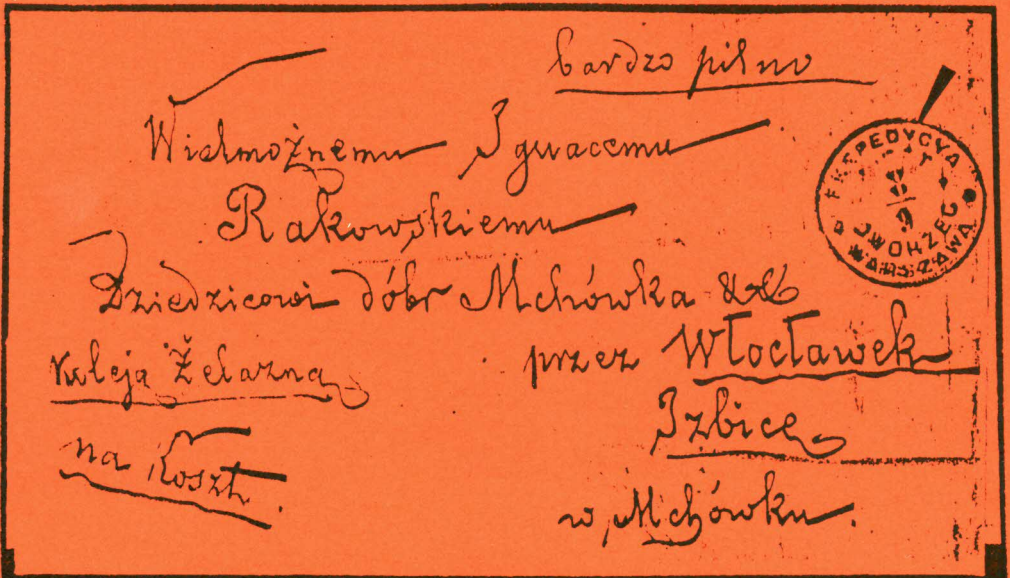 bardzo pilno
Wielmożnemu Ignacemu
Rakowskiemu
Dziedzicowi dóbr Mchówka
koleją Żelazną przez Włocławek
Izbicę
na Koszt
w Mchówku.
EKSPEDYCYA
DWORZEC
WARSZAWA